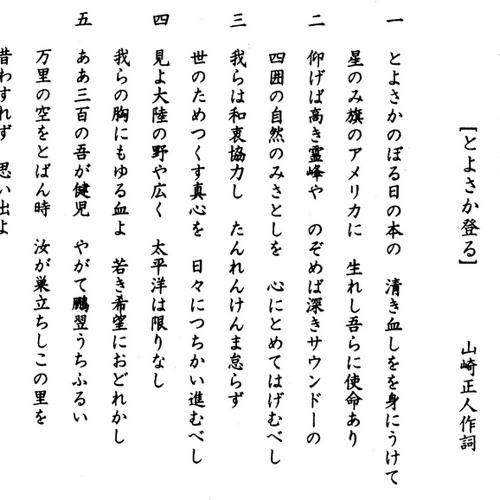 [とよさか登る]
山崎正人作詞
一 とよさかのぼる日の本の 清き血しをを身にうけて
星のみ旗のアメリカに 生れし吾らに使命あり
二 仰げば高き霊峰や のぞめば深きサウンドーの
四囲の自然のみさとしを 心にとめてはげむべし
三 我らは和衷協力し たんれんけんま怠らず
世のためつくす真心を 日々につちかい進むべし
四 見よ大陸の野や広く 太平洋は限りなし
我らの胸にもゆる血よ 若き希望におどれかし
五 ああ三百の吾が健児 やがて鵬翌うちふるい
万里の空をとばん時 汝が巣立ちしこの里を
昔わすれず 思い出よ